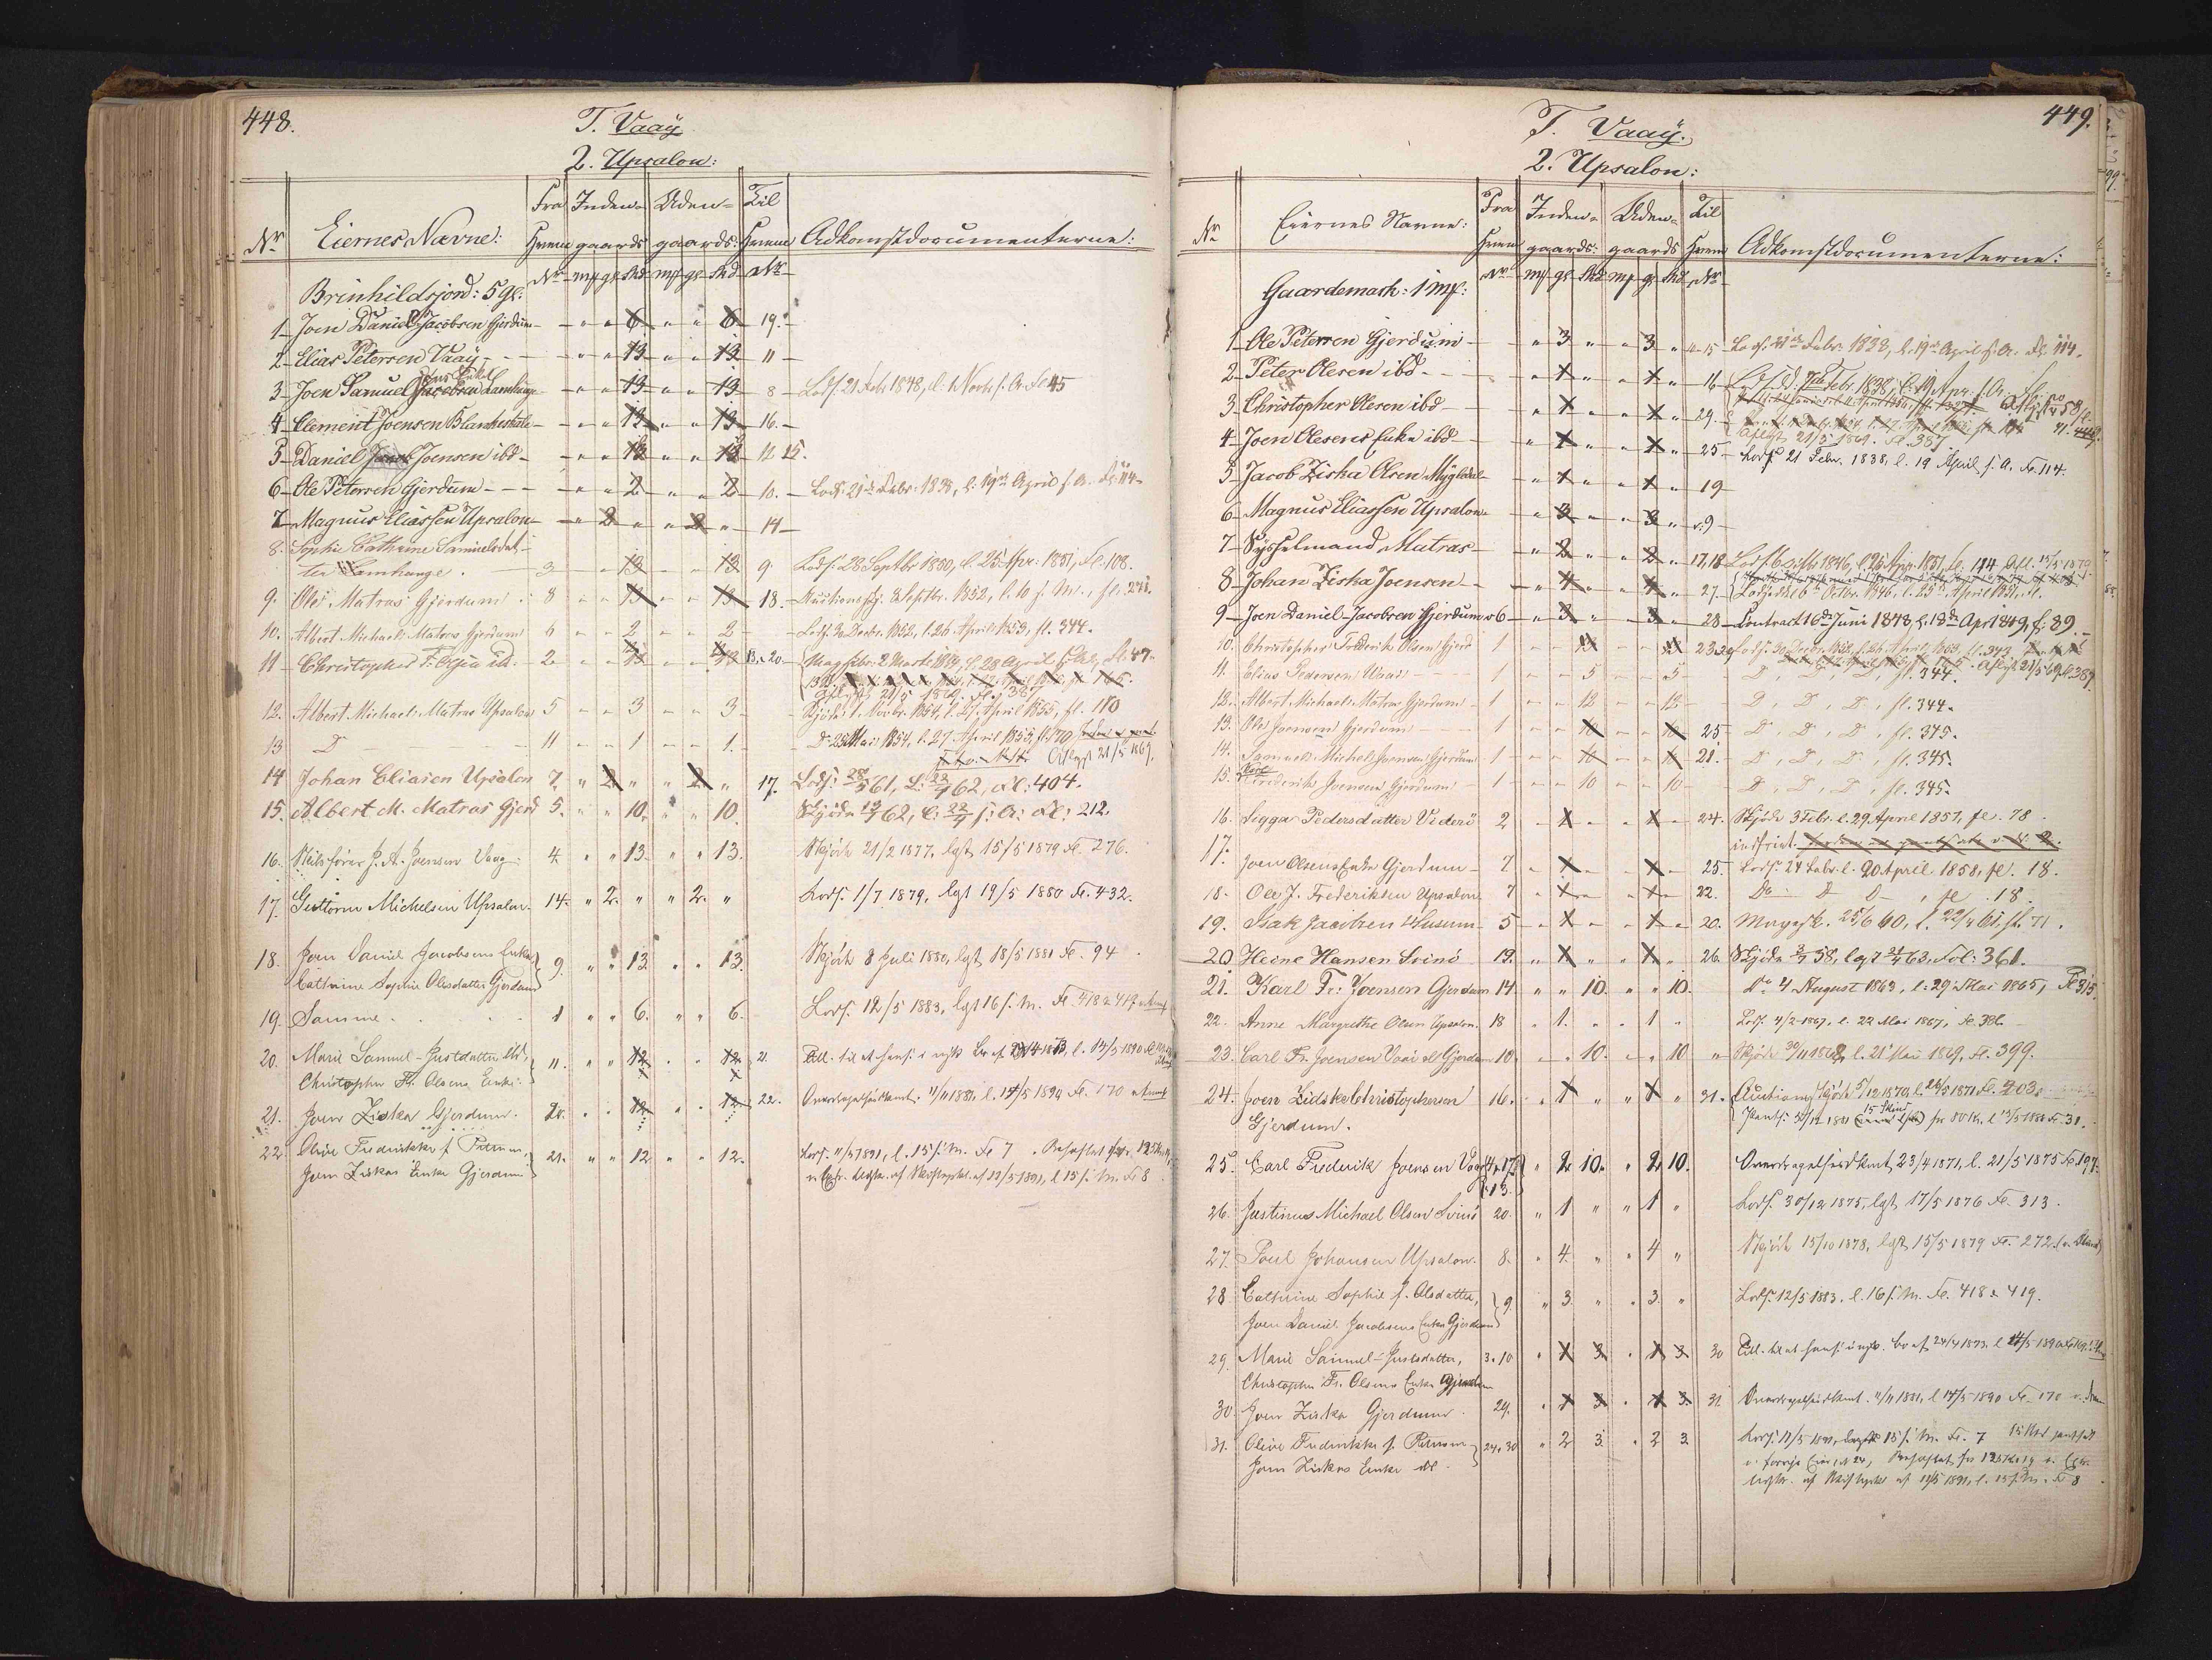 448.
T. Vaaÿ
2. Upsalon:
Nr Eiernes Navne: Fra Hvem Nr Indengaards mk gl. skd Udengaards: mk gl. skd Til Hvem Nr Adkomstdocumenterne:
Brinhildsjord: 5 gl:
1 Joen Daniel Jacobsen Gjerdum 6 6 19.
2 Elias Petersen Vaaÿ 13 13 11
3 Joen Samuel 13 13 8 Lods. 21 Feb 1848, l. f. A. Fol 45
4 Clement Joensen Blankeskaale 13 13 16.
5 Daniel Joensen ibd 12 12 12 15.
6 Ole Petersen Gjerdum 2 2 10. Lods. 21de Febr. 1838, l. 19de April f. A. Fol. 114
7 Magnus Eliassen Upsalon 2 2 14
8. Sophie Cathrine Samuelsdat-
ter Lamhauge. 3 13 13 9 Lods. 28 Septbr 1850, l. 25 Apr. 1851, Fol. 108.
9. Ole Matras Gjerdum 8 13 13 18. Auctionsskj. Septbr. 1852, l. 10 f. M., fl. 271.
10. Albert Michael Matras Gjerdum 6 2 2 Lods. 30 Decbr. 1852, l. 26 April 1853, fl. 344.
11 Christopher F. Olsen id. 2 13 13 13. 20. Mageskbr. 2 Marts 1854, l. 28 April
Aflyst 21/5 1869. Fl. 387
12. Albert Michael Matras Upsalon 5 3 3 Skjöde 1. Novbr. 1854, l. 27 April 1855, fl. 170
13 D 11 1 1. Do 28 Mai 1854, l. 27 April 1855, fl. 170
Aflyst 21/5 1869.
14 Johan Eliasen Upsalon 7. 2 2 17. Lods. 28/5 61, L. 23/4 62, Fol: 404.
15. Albert M. Matras Gjerd 5. 10. 10. Skjöde 62, l. 22/4 f: A: Fol: 212.
16. J. A. Joensen Vaag 4. 13. 13. Skjöde 21/2 1877, lgst 15/5 1879 Fl. 276.
17. Guttorm Michelsen Upsalon 14. 2. 2. Lods. 1/7 1879, lgst 19/5 1880 Fl. 432.
18. Joen Daniel Jacobsens Enke
Cathrine Sophie Olesdatter Gjerdum 9. 13 13. Skjöde 8 Juli 1880, lgst 18/5 1881 Fl. 94.
19. Samme 1 6. 6. Lods. 12/5 1883, lgst 16 f. M. Fl. 418 & 419
20. Marie Samuel-Justdatter ibd,
Christopher Fr. Olsens Enke. 11. 12 12 21.
21. Joen Ziska Gjerdum. 20. 12 12 22. Overdragelsesdkmt. 11/11 1881, l. 14/5 1890 Fl. 170
22. Olive Frederikke f. Petersen,
Joen Ziskas Enke Gjerdum 21. 12 12. Lods. 11/5 1891, l. 15 f. M. Fl 7.
11/5 1891, l 15 f. M. Fl 8
449.
T. Vaaÿ.
2. Upsalon:
Nr Eiernes Navne: Fra Hvem Nr Indengaards: mk gl. skd Udengaards mk gl. skd Til Hvem Nr Adkomstdocumenterne:
Gaardemark: 1 mk:
1 Ole Petersen Gjerdum 3 3 15 Lods. 21de Febr. 1838, l. 19de April f. A. Fl. 114.
2 Peter Olesen ibd 1 1 16 Febr. 1838, l. 19 Apr. f. A.
3 Christopher Olesen ibd 1 1 29.
Aflyst 21/5 1869. Fl. 387
4 Joen Olesens Enke ibd 1 1 25 Lods. 21 Febr. 1838, l. 19 April f. A. Fl. 114.
5 Jacob Ziska Olsen Mÿgledal 1 1 19
6 Magnus Eliassen Upsalon 3 3 9
7 Sysselmand Matras 2 2 17, 18 1846, l. 25 Apr. 1851, fl. 114
8 Johan Ziska Joensen 4 4 27. Octbr. 1846, l. 25de April 1851, fl.
9 Joen Daniel Jacobsen Gjerdum 6 3 3 28 Contract 16de Juni 1848, l. 18de Apr 1849, f. 89.
10. Christopher Frederik Olsen Gjerd 1 13 13 23.29 Lods. 30 Decbr. 1852, l. 26 April 1853, fl. 343
11. Elias Pedersen Waai 1 5 5 D, D, D, fl. 344. Aflyst 21/5 69 fl. 389
12. Albert Michael Matras Gjerdum 1 12 12 D, D, D, fl. 344.
13. Ole Joensen Gjerdum 1 10 10 25 D, D, D, fl. 345.
14. Samuel Michel Joensen Gjerdum 1 10 10 21. D, D, D, fl. 345.
15. Carl Frederik Joensen Gjerdum 1 10 10 D, D, D, fl. 345.
16. Sigga Pedersdatter Viderö 2 1 1 24. Skjöde 3 Febr. l. 29 April 1857, fl. 78.
17. Joen Olsens Enke Gjerdum 7 1 1 25. Lods. 24 Febr. l. 20 April 1858, fl. 18.
18. Ole J. Frederiksen Upsalon 7 1 1 22. Do D D, fl. 18.
19. Isak Jacobsen Husum 5 1 1 20. Magesk. 25/6 60, l. 22/4 61, fl. 71.
20 Heine Hansen Svinö 19. 1 1 26. Skjöde 58, lgt 63, Fol: 361.
21. Karl Fr: Joensen Gjerdum 14 10. 10. Do 4 August 1863, l. 29 Mai 1865, Fl 315.
22. Anne Margrethe Olsen Upsalon. 18 1. 1 Lods. 4/2 1867, l. 22 Mai 1867, Fl. 386.
23. Carl Fr. Joensen Vaai el Gjerdum 10 10. 10 Skjöde 30/11 1868, l. 21 Mai 1869, Fl. 399.
24. Joen Zidske Christophersen
Gjerdum. 16. 1 1 31. Auctions Skjöde 5/12 1870, l. 26/5 1871 Fl. 203.
25. Carl Frederik Joensen Vaag 4, 17, 13. 2 10. 2 10. Overdragelsesdkmt 23/4 1871, l. 21/5 1875 Fl. 197.
26. Justinus Michael Olsen Svinö 20. 1 1 Lods. 30/12 1875, lgst 17/5 1876 Fl. 313.
27. Poul Johansen Upsalon. 8. 4. 4 Skjöde 15/10 1878, lgst 15/5 1879 Fl. 272.
28 Cathrine Sophie f. Olsdatter,
Joen Daniel Jacobsens Enke Gjerdum 9. 3 3 Lods. 12/5 1883. l. 16 f. M. Fl. 418 & 419.
29. Marie Samuel-Justsdatter,
Christopher Fr. Olsens Enke Gjerdum 3. 10 1 3 1 3 30
30. Joen Ziska Gjerdum. 29. 1 3 1 3 31. Overdragelsesdkmt. 11/11 1881, l 14/5 1890 Fl. 170
31. Olive Frederikke f. Petersen
Joen Ziskas Enke ibd. 24, 30 2 3 2 3 Lods. 11/5 1891, 15 f. M. Fl. 7
11/5 1891, l. 15 f. M. Fl 8